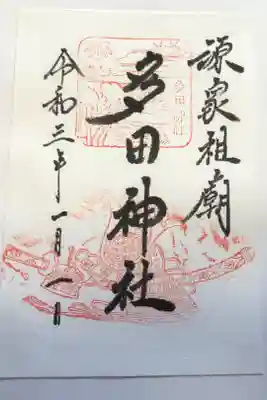 源家祖廟
多田神社
令和三年一月一日
多田神社